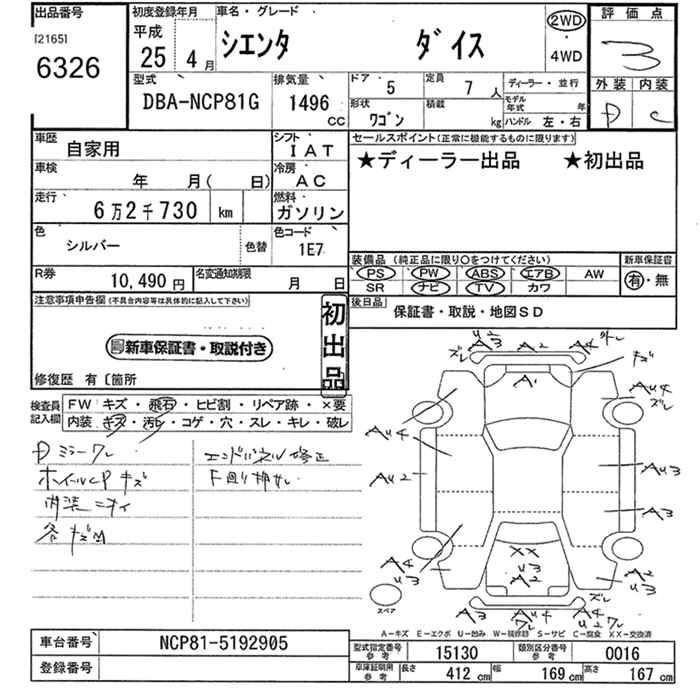 出品番号
[2165]
6326
初度登録年月
平成
25 4月
車名・グレード
シエンタ ダイス
2WD
・
4WD
評価点
3
外装 内装
D C
型式
DBA-NCP81G
排気量
1496
cc
ドア・
5
定員
7
人
形状
ワゴン
積載
kg
ディーラー・並行
モデル年式 年
ハンドル 左・右
車歴
自家用
シフト
IAT
車検
年 月( 日)
冷房
AC
走行
6万2千730 km
燃料
ガソリン
色
シルバー
色替
色コード
1E7
R券
10,490円
名変通知期限
月 日
セールスポイント(正常に機能するものに限ります)
★ディーラー出品 ★初出品
装備品 (純正品に限り○をつけてください)
PS PW ABS エアB AW
SR ナビ TV カワ
新車保証書
有・無
後日品
保証書・取説・地図SD
注意事項申告欄(不具合内容等は具体的に記入して下さい)
初出品
新車保証書・取説付き
修復歴 有〔箇所
検査員
記入欄
FW キズ・飛石・ヒビ割・リペア跡・×要
内装・キズ・汚レ・コゲ・穴・スレ・キレ・破レ
Dミラーワレ
ホイールCPキズ
内装ニオイ
各キズM
エンドパネル修正
F回り押し
U2
A3
ズレ
A2
A4
キズ
A1
AU4
ズレ
AU4
AU2
AU3
A3
A4
U3
XX
U3
A2
A2
U3
A3
AU4
スペア
A-キズ E-エクボ U-凹み W-補修跡 S-サビ C-腐食 XX-交換済
車台番号
NCP81-5192905
登録番号
型式指定番号
参考
15130
類別区分番号
参考
0016
車庫証明用
参考
長さ
412 cm
幅
169 cm
高さ
167 cm